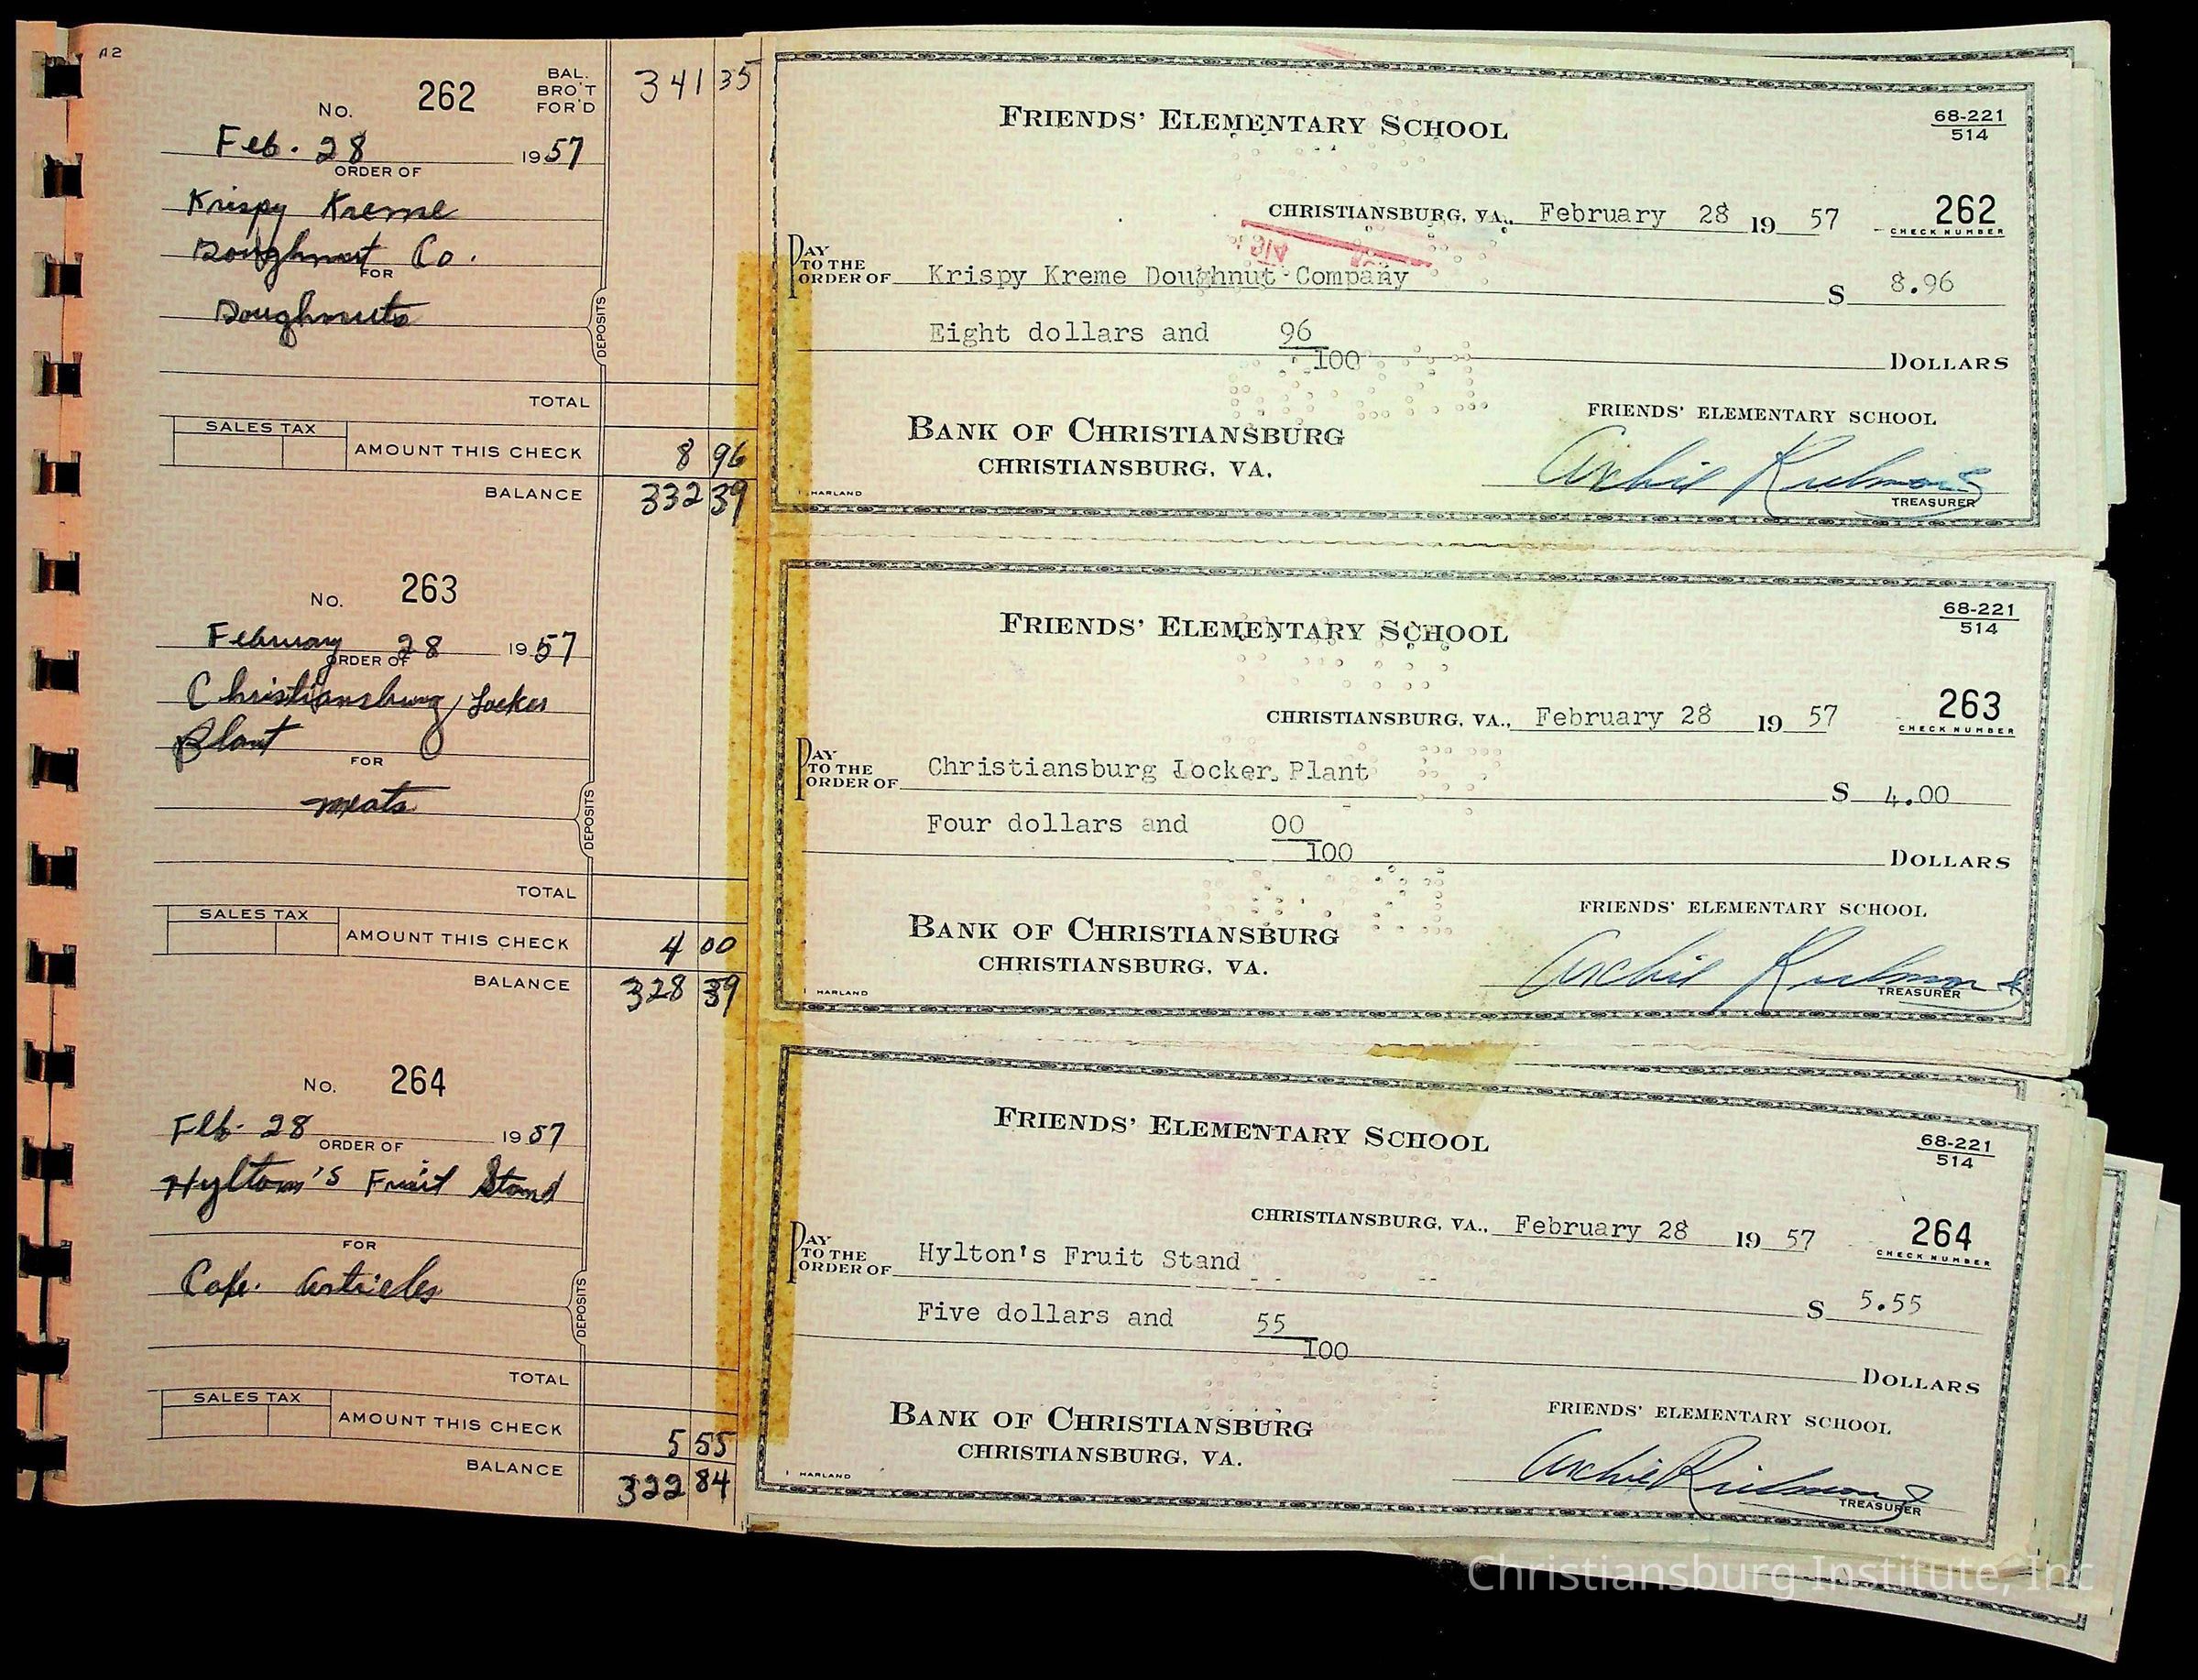 A2
No. 262 BAL. BRO'T FOR'D 341 35
Feb. 28 1957
ORDER OF
Krispy Kreme
Doughnut Co.
FOR
Doughnuts
DEPOSITS
TOTAL
SALES TAX
AMOUNT THIS CHECK 8 96
BALANCE 332 39
No. 263
February 28 1957
ORDER OF
Christiansburg Locker
Plant
FOR
meats
DEPOSITS
TOTAL
SALES TAX
AMOUNT THIS CHECK 4 00
BALANCE 328 39
No. 264
Feb. 28 1957
ORDER OF
Hylton's Fruit Stand
FOR
Cafe. articles
DEPOSITS
TOTAL
SALES TAX
AMOUNT THIS CHECK 5 55
BALANCE 322 84
FRIENDS' ELEMENTARY SCHOOL
68-221
514
CHRISTIANSBURG, VA., February 28 19 57 262
CHECK NUMBER
PAY TO THE ORDER OF Krispy Kreme Doughnut Company $ 8.96
Eight dollars and 96
100 DOLLARS
BANK OF CHRISTIANSBURG
CHRISTIANSBURG, VA.
FRIENDS' ELEMENTARY SCHOOL
Archie Richmond
TREASURER
HARLAND
FRIENDS' ELEMENTARY SCHOOL
68-221
514
CHRISTIANSBURG, VA., February 28 19 57 263
CHECK NUMBER
PAY TO THE ORDER OF Christiansburg Locker Plant $ 4.00
Four dollars and 00
100 DOLLARS
BANK OF CHRISTIANSBURG
CHRISTIANSBURG, VA.
FRIENDS' ELEMENTARY SCHOOL
Archie Richmond
TREASURER
HARLAND
FRIENDS' ELEMENTARY SCHOOL
68-221
514
CHRISTIANSBURG, VA., February 28 19 57 264
CHECK NUMBER
PAY TO THE ORDER OF Hylton's Fruit Stand $ 5.55
Five dollars and 55
100 DOLLARS
BANK OF CHRISTIANSBURG
CHRISTIANSBURG, VA.
FRIENDS' ELEMENTARY SCHOOL
Archie Richmond
TREASURER
HARLAND
Christiansburg Institute, Inc